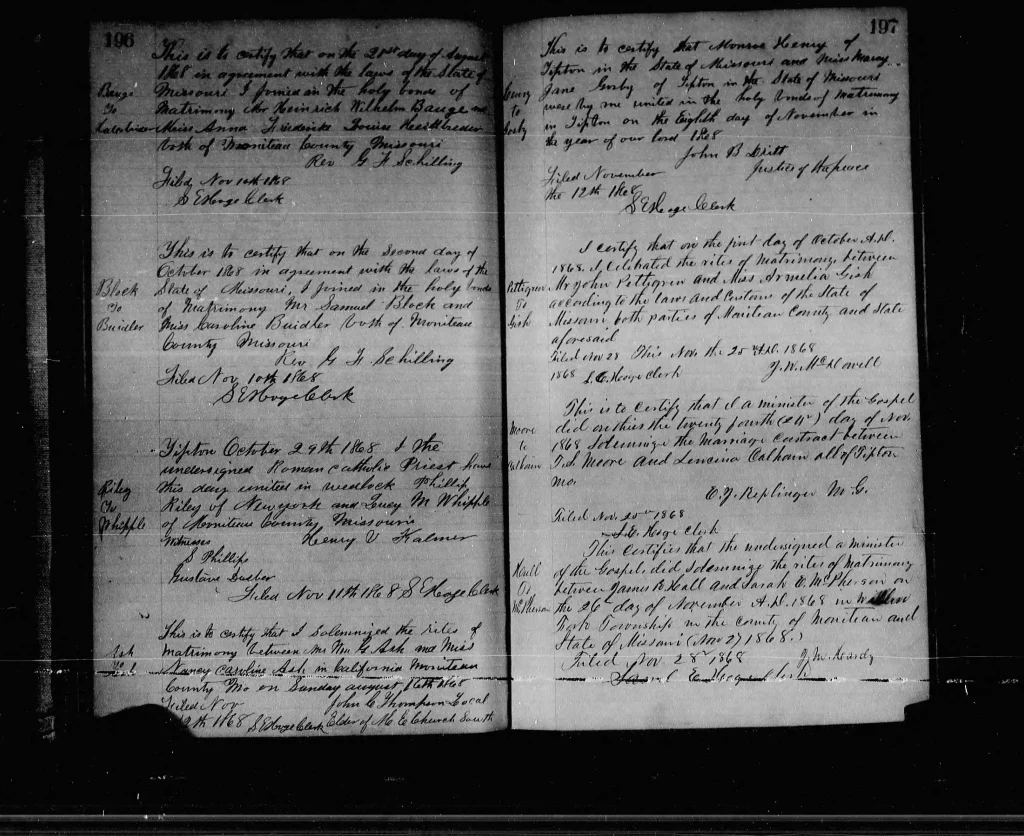 196
This is to certify that on the 21st day of August
1868 in agreement with the laws of the State of
Missouri I joined in the holy bonds of
Matrimony Mr Heinrich Wilhelm Bauge and
Miss Anna Friedericke Louise
both of Moniteau County Missouri
Rev G F Schilling
Filed Nov 10th 1868
S E Hoge Clerk
Bauge
To
This is to certify that on the Second day of
October 1868 in agreement with the laws of the
State of Missouri, I joined in the holy bonds
of Matrimony Mr Samuel Block and
Miss Caroline Buidler both of Moniteau
County Missouri
Rev. G F Schilling
Filed Nov 10th 1868
S E Hoge Clerk
Block
To
Buidler
Tipton October 29th 1868 I the
undersigned Roman Catholic Priest have
this day united in wedlock Phillip
Riley of New york and Lucy M Whipple
of Moniteau County Missouri
Witnesses Henry V Kalmer
S Phillips
Gustave
Filed Nov 11th 1868 S E Hoge Clerk
Riley
To
Whipple
This is to certify that I Solemnized the rites of
matrimony between Mr Wm G Ash and Miss
Nancy Caroline Ash in California Moniteau
County Mo on Sunday august 16th 1868
Filed Nov John C Thompson Local
12th 1868 S E Hoge Clerk Elder of M E Church South
Ash
To
197
This is to certify that Monroe Henry of
Tipton in the State of Missouri and Miss Mary
Jane Gosby of Tipton in the State of Missouri
were by me united in the holy bonds of matrimony
in Tipton on the Eighth day of November in
the year of our lord 1868
John B
Justice of the peace
Filed November
the 12th 1868
S E Hoge Clerk
Henry
to
Gosby
I certify that on the first day of October A.D.
1868. I Celebrated the rites of Matrimony between
Mr John Pettigrew and Miss Armelia Gish
according to the laws and Customs of the State of
Missouri, both parties of Moniteau County and State
aforesaid
Filed Nov 28 This Nov. the 25 A.D. 1868
1868 S. E. Hoge Clerk J. W. McDowell
Pettigrew
To
Gish
This is to certify that I a minister of the Gospel
did on this the twenty fourth (24th) day of Nov.
1868 Solemnize the Marriage Contract between
Moore and Calhoun all of Tipton
Mo.
Replinger M. G.
Filed Nov. 25th 1868
S. E. Hoge Clerk
Moore
to
Calhoun
This Certifies that the undersigned a minister
of the Gospel did Solemnize the rites of Matrimony
between James R Hall and Sarah E. McPherson on
the 26th day of November A.D. 1868 in
Fork Township in the county of Moniteau and
State of Missouri (Nov 27 1868.)
Filed Nov. 28th 1868 J. M. Hardy
Samuel E Hoge Clerk
To
McPherson